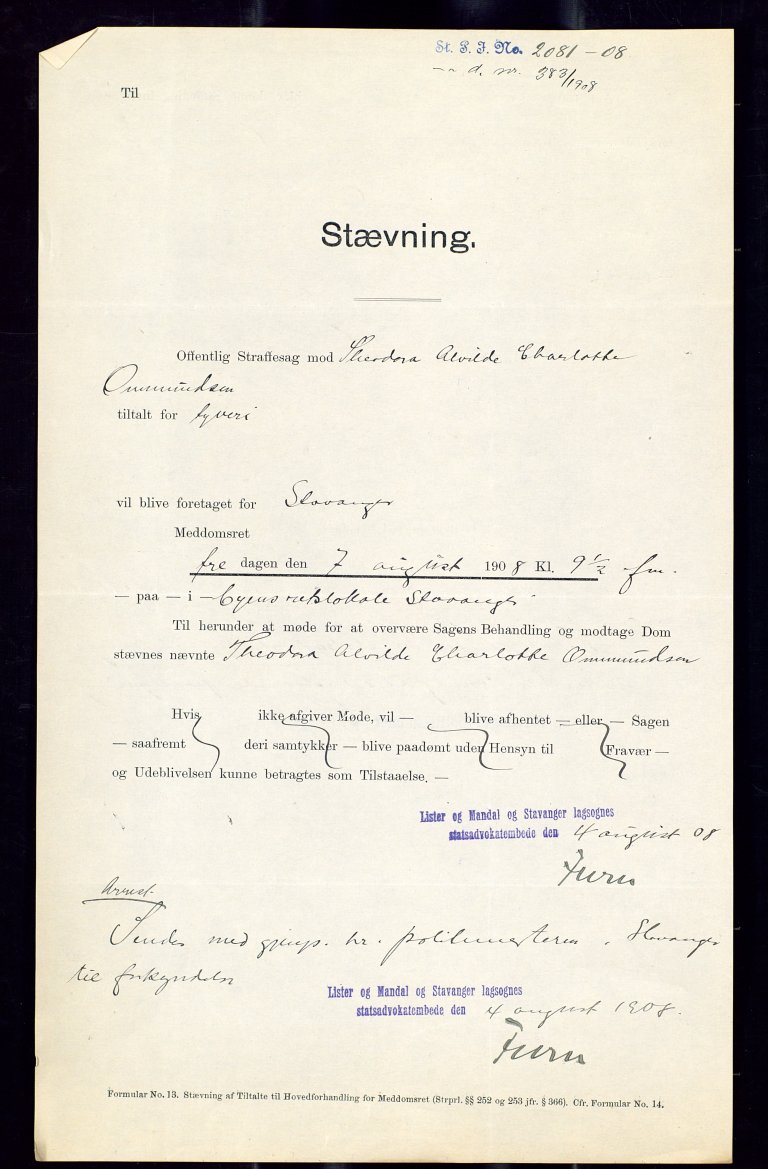 St. P. J. No. 2081 - 08
— d. nr. 383/1908
Til
Stævning.
Offentlig Straffesag mod Theodora Alvilde Charlotte
Ommundsen
tiltalt for tyveri
vil blive foretaget for Stavanger
Meddomsret
fre dagen den 7 august 1908 Kl. 9 1/2 fm.
— paa — i — byens retslokale Stavanger
Til herunder at møde for at overvære Sagens Behandling og modtage Dom
stævnes nævnte Theodora Alvilde Charlotte Ommundsen
Hvis ikke afgiver Møde, vil — blive afhentet — eller — Sagen
— saafremt deri samtykker — blive paadømt uden Hensyn til Fravær —
og Udeblivelsen kunne betragtes som Tilstaaelse. —
Lister og Mandal og Stavanger lagsognes
statsadvokatembede den 4 august 08
Furu
Arrest
Sendes med gjenp. hr. politimesteren i Stavanger
til forkyndelse
Lister og Mandal og Stavanger lagsognes
statsadvokatembede den 4 august 1908.
Furu
Formular No. 13. Stævning af Tiltalte til Hovedforhandling for Meddomsret (Strprl. §§ 252 og 253 jfr. § 366). Cfr. Formular No. 14.